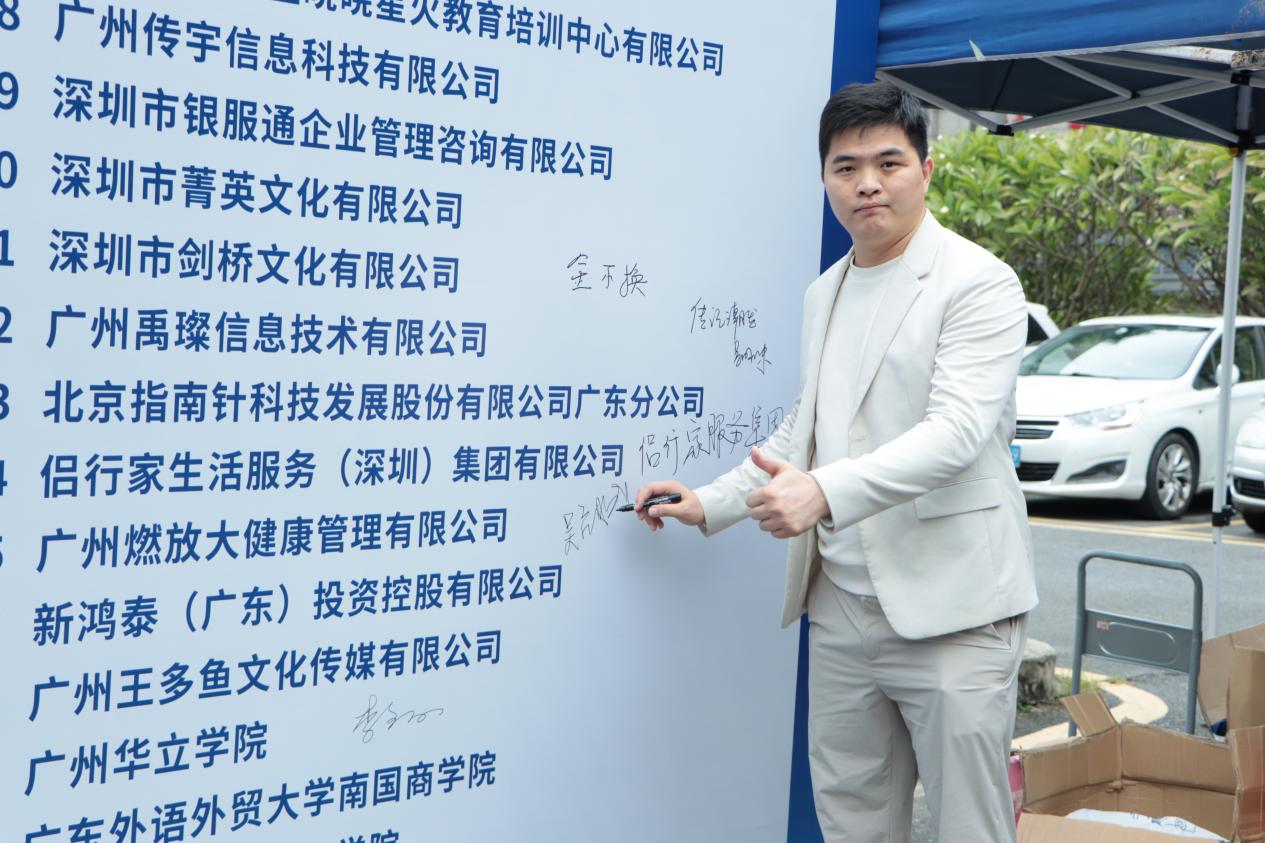 星火教育培训中心有限公司
8 广州传宇信息科技有限公司
9 深圳市银服通企业管理咨询有限公司
0 深圳市菁英文化有限公司
1 深圳市剑桥文化有限公司
金不换
2 广州禹璨信息技术有限公司
3 北京指南针科技发展股份有限公司广东分公司
4 侣行家生活服务（深圳）集团有限公司
侣行家服务集团
5 广州燃放大健康管理有限公司
新鸿泰（广东）投资控股有限公司
广州王多鱼文化传媒有限公司
广州华立学院
广东外语外贸大学南国商学院
学院